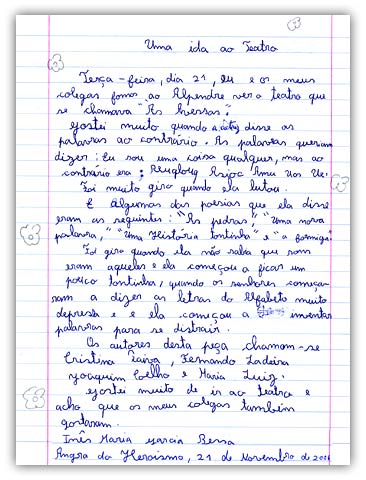 Uma ida ao Teatro
Terça-feira, dia 21, eu e os meus
colegas fomos ao Alpendre ver o teatro que
se chamava "As Avessas".
Gostei muito quando a actriz disse as
palavras ao contrário. As palavras queriam
dizer: Eu sou uma coisa qualquer, mas ao
contrário era: Reuqlauq Asioc Amu Uos Ue.
Foi muito giro quando ela lutou.
E algumas das poesias que ela disse
eram as seguintes: "As pedras", "Uma nova
palavra", "Uma História tontinha" e "a formiga".
Foi giro quando ela não sabia que som
eram aqueles e ela começou a ficar um
pouco tontinha, quando os senhores começa-
ram a dizer as letras do Alfabeto muito
depressa e e ela começou a inventar
palavras para se distrair.
Os autores desta peça chamam-se
Cristina Taiva, Fernando Ladeira
Joaquim Coelho e Maria Luiz.
Gostei muito de ir ao teatro e
acho que os meus colegas também
gostaram.
Inês Maria Garcia Bessa
Angra do Heroísmo, 21 de Novembro de